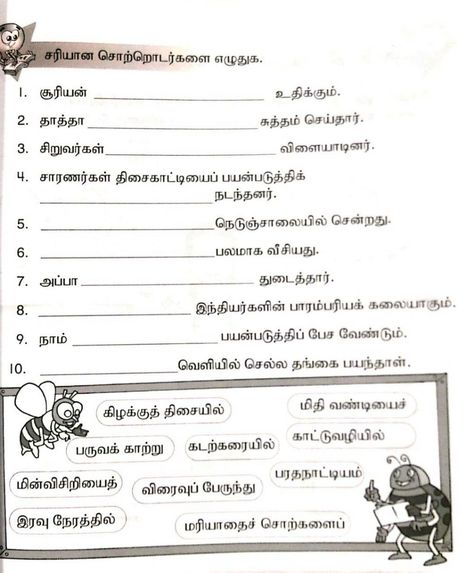 சரியான சொற்றொடர்களை எழுதுக.
1. சூரியன் ____________________ உதிக்கும்.
2. தாத்தா ____________________ சுத்தம் செய்தார்.
3. சிறுவர்கள் ____________________ விளையாடினர்.
4. சாரணர்கள் திசைகாட்டியைப் பயன்படுத்திக்
____________________ நடந்தனர்.
5. ____________________ நெடுஞ்சாலையில் சென்றது.
6. ____________________ பலமாக வீசியது.
7. அப்பா ____________________ துடைத்தார்.
8. ____________________ இந்தியர்களின் பாரம்பரியக் கலையாகும்.
9. நாம் ____________________ பயன்படுத்திப் பேச வேண்டும்.
10. ____________________ வெளியில் செல்ல தங்கை பயந்தாள்.
கிழக்குத் திசையில் மிதி வண்டியைச்
பருவக் காற்று கடற்கரையில் காட்டுவழியில்
மின்விசிறியைத் விரைவுப் பேருந்து பரதநாட்டியம்
இரவு நேரத்தில் மரியாதைச் சொற்களைப்